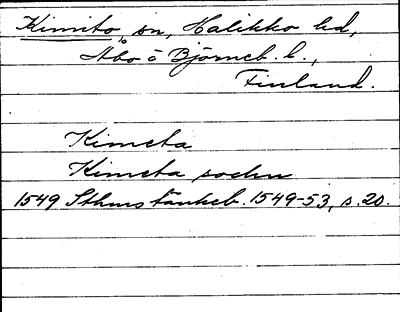 Kimito sn, Halikko hd,
Åbo o Björneb. l.,
Finland.
Kimeta
Kimeta sochn
1549 Sthms tänkeb. 1549-53, s. 20.